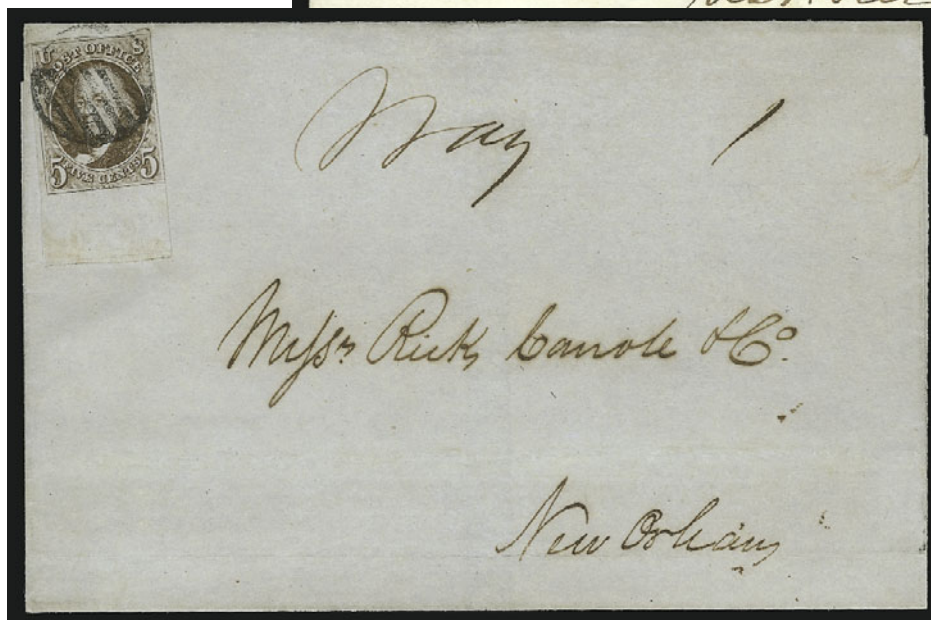 U S
POST OFFICE
5 FIVE CENTS 5
Way 1
Messrs Rick, & Co.
New Orleans